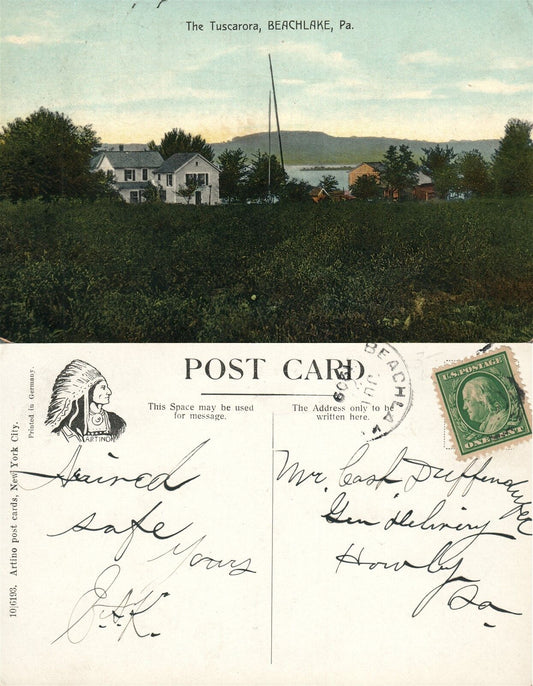 The Tuscarora, BEACHLAKE, Pa.
Printed in Germany.
10/6193. Artino post cards, New York City.
ARTINO
POST CARD
This Space may be used
for message.
The Address only to be
written here.
BEACHLA
JU
1909
U.S. POSTAGE
ONE CENT
safe
Yours
J.A.K.
Mr. Cash
Gen Delivery
Pa